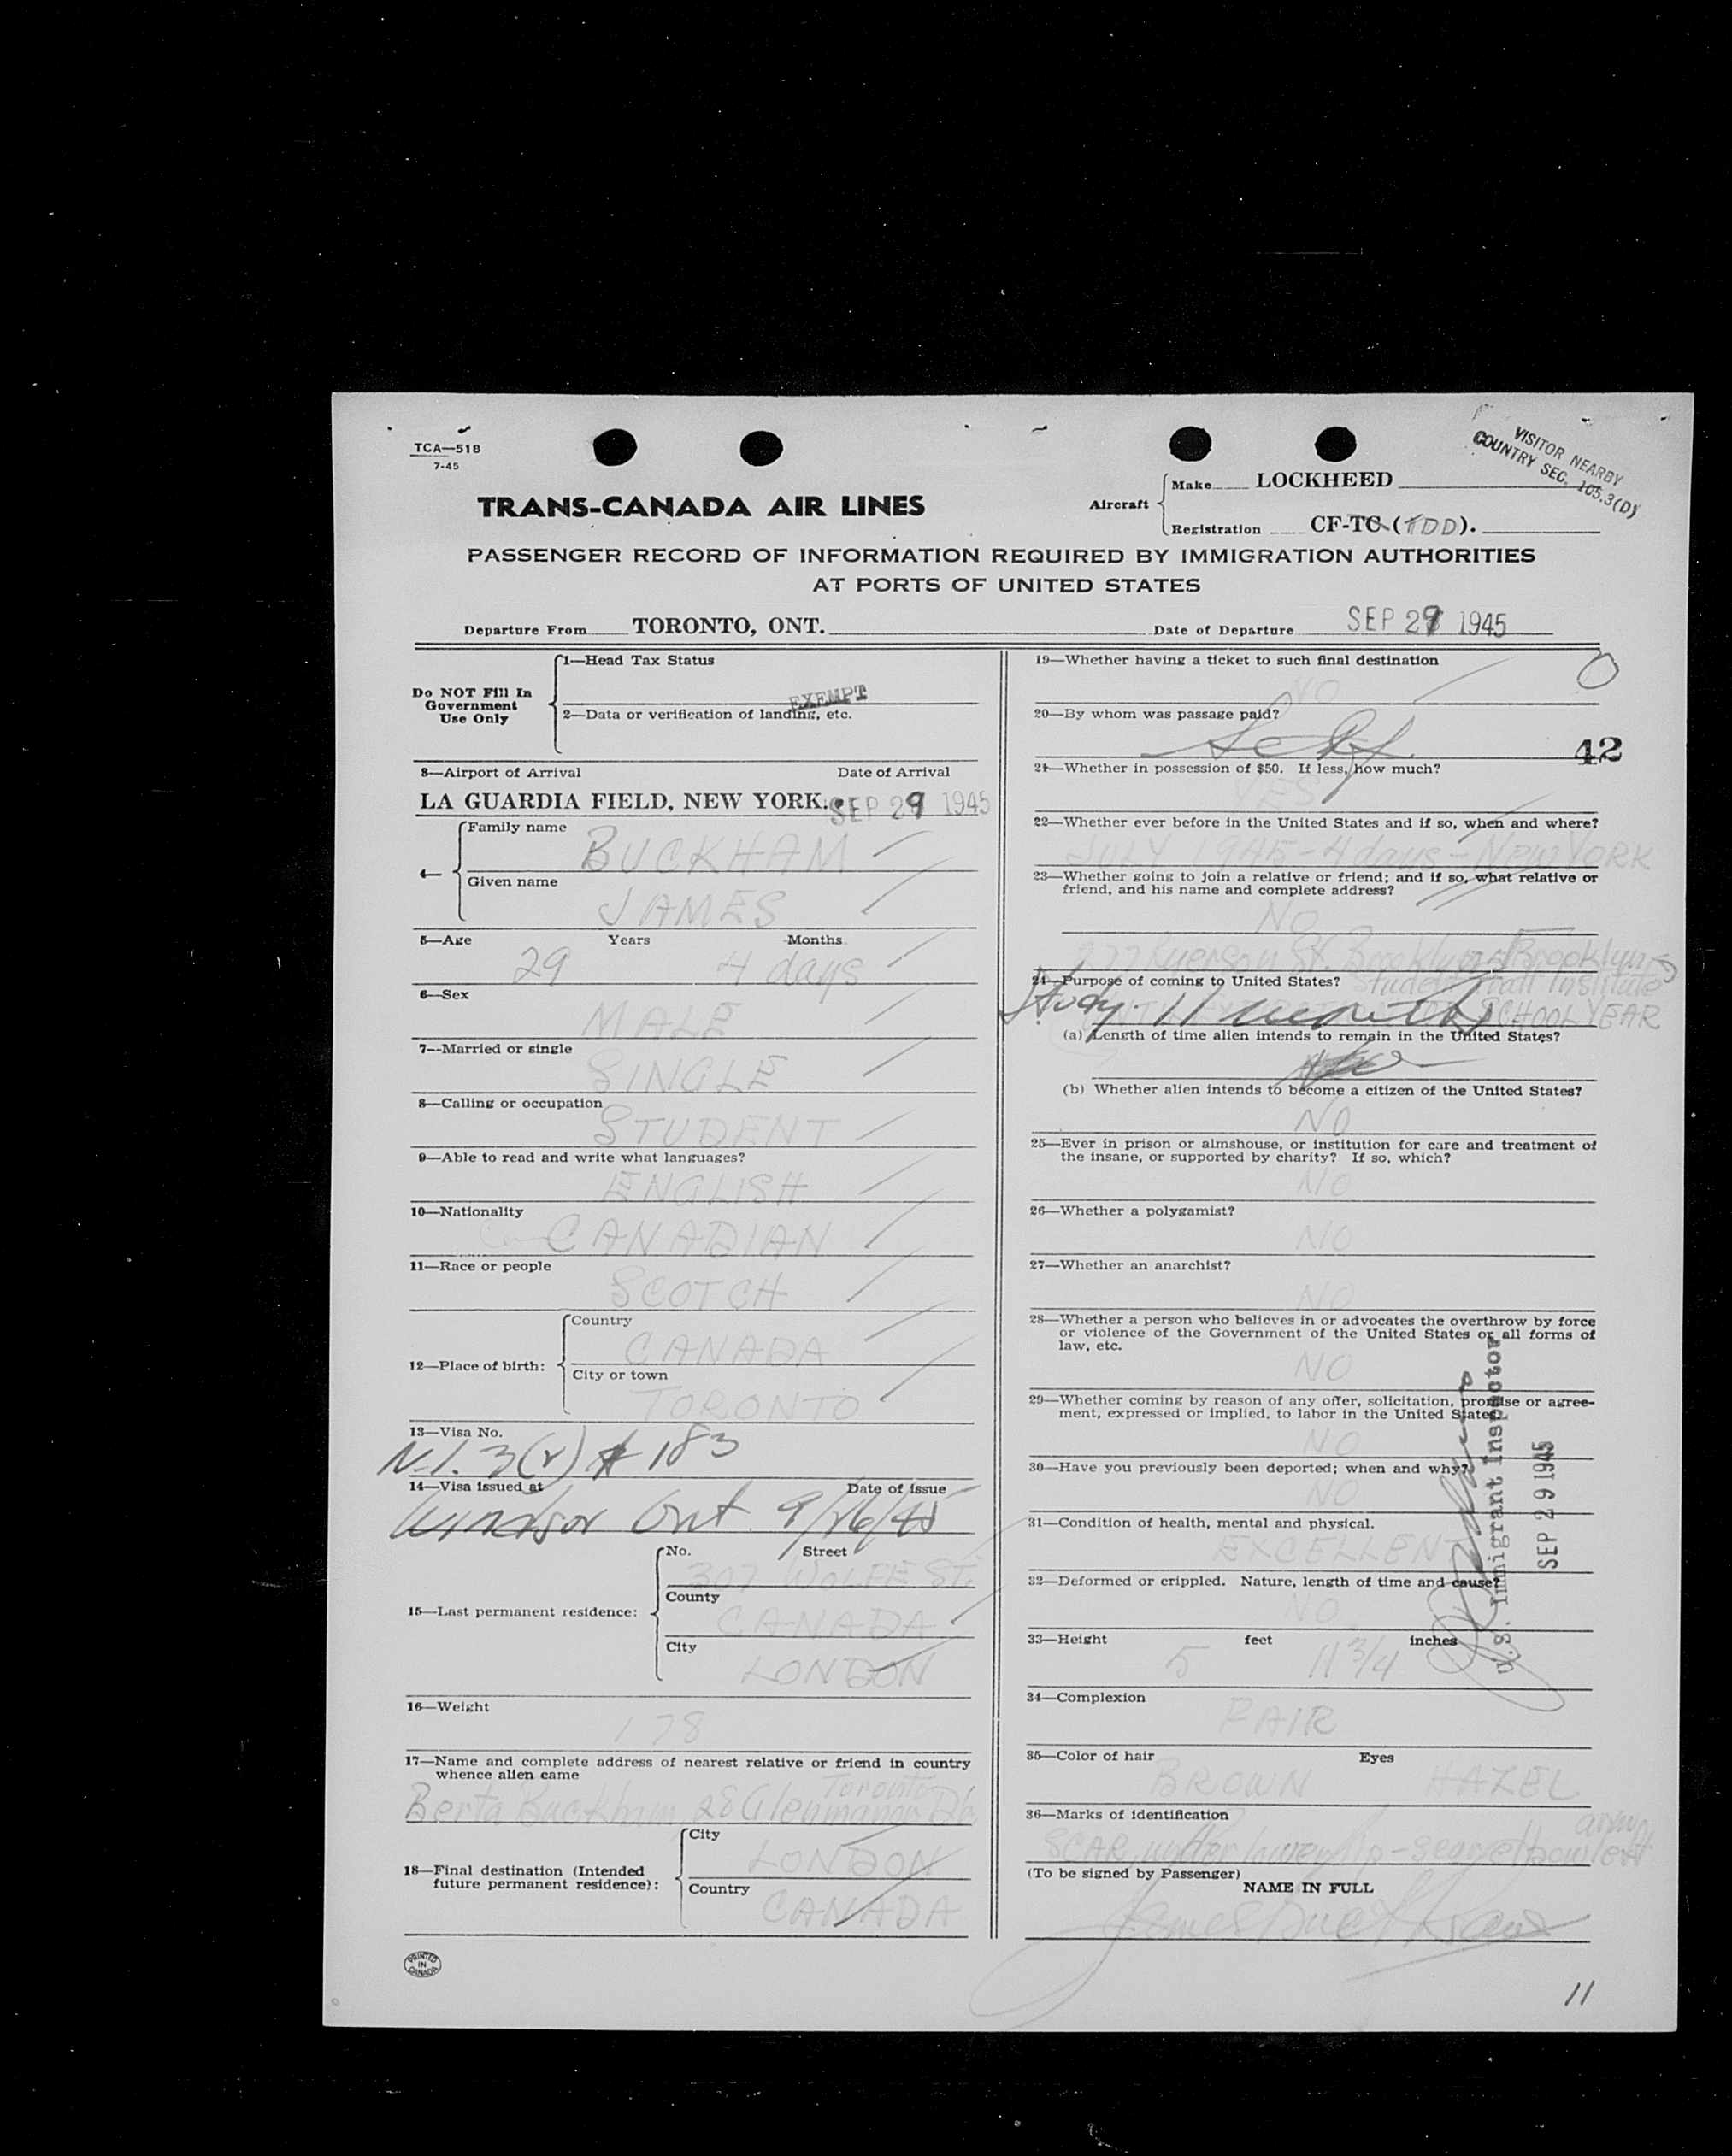 TCA—518
7-45
VISITOR NEARBY
COUNTRY SEC. 105.3(D)
TRANS-CANADA AIR LINES
Aircraft
Make LOCKHEED
Registration CF-TC (TDD).
PASSENGER RECORD OF INFORMATION REQUIRED BY IMMIGRATION AUTHORITIES
AT PORTS OF UNITED STATES
Departure From TORONTO, ONT. Date of Departure SEP 29 1945
Do NOT Fill In
Government
Use Only
1—Head Tax Status
EXEMPT
2—Data or verification of landing, etc.
3—Airport of Arrival Date of Arrival
LA GUARDIA FIELD, NEW YORK. SEP 29 1945
4—
Family name
BUCKHAM
Given name
JAMES
5—Age Years Months
29 4 days
6—Sex
MALE
7—Married or single
SINGLE
8—Calling or occupation
STUDENT
9—Able to read and write what languages?
ENGLISH
10—Nationality
CANADIAN
11—Race or people
SCOTCH
12—Place of birth:
Country
CANADA
City or town
TORONTO
13—Visa No.
N.I. 3(2) # 183
14—Visa issued at Date of issue
Windsor Ont. 9/26/45
15—Last permanent residence:
No. Street
307 WOLFE ST.
County
CANADA
City
LONDON
16—Weight
178
17—Name and complete address of nearest relative or friend in country
whence alien came
Toronto
Berta Buckham 28 Glenmanor Dr.
18—Final destination (Intended
future permanent residence):
City
LONDON
Country
CANADA
PRINTED
IN
CANADA
19—Whether having a ticket to such final destination
NO
0
20—By whom was passage paid?
Self
42
21—Whether in possession of $50. If less, how much?
YES
22—Whether ever before in the United States and if so, when and where?
JULY 1945 - 4 days - NEW YORK
23—Whether going to join a relative or friend; and if so, what relative or
friend, and his name and complete address?
NO
Ryerson St. Brooklyn Brooklyn
24—Purpose of coming to United States?
Student Pratt Institute
Study 11 months SCHOOL YEAR
(a) Length of time alien intends to remain in the United States?
(b) Whether alien intends to become a citizen of the United States?
NO
25—Ever in prison or almshouse, or institution for care and treatment of
the insane, or supported by charity? If so, which?
NO
26—Whether a polygamist?
NO
27—Whether an anarchist?
NO
28—Whether a person who believes in or advocates the overthrow by force
or violence of the Government of the United States or all forms of
law, etc.
NO
29—Whether coming by reason of any offer, solicitation, promise or agree-
ment, expressed or implied, to labor in the United States.
NO
30—Have you previously been deported; when and why?
NO
31—Condition of health, mental and physical.
EXCELLENT
32—Deformed or crippled. Nature, length of time and cause?
NO
33—Height feet inches
5 11 3/4
34—Complexion
FAIR
35—Color of hair Eyes
BROWN HAZEL
36—Marks of identification
SCAR under lower lip - scar left arm
(To be signed by Passenger)
NAME IN FULL
James Buckham
U.S. Immigrant Inspector
SEP 29 1945
11